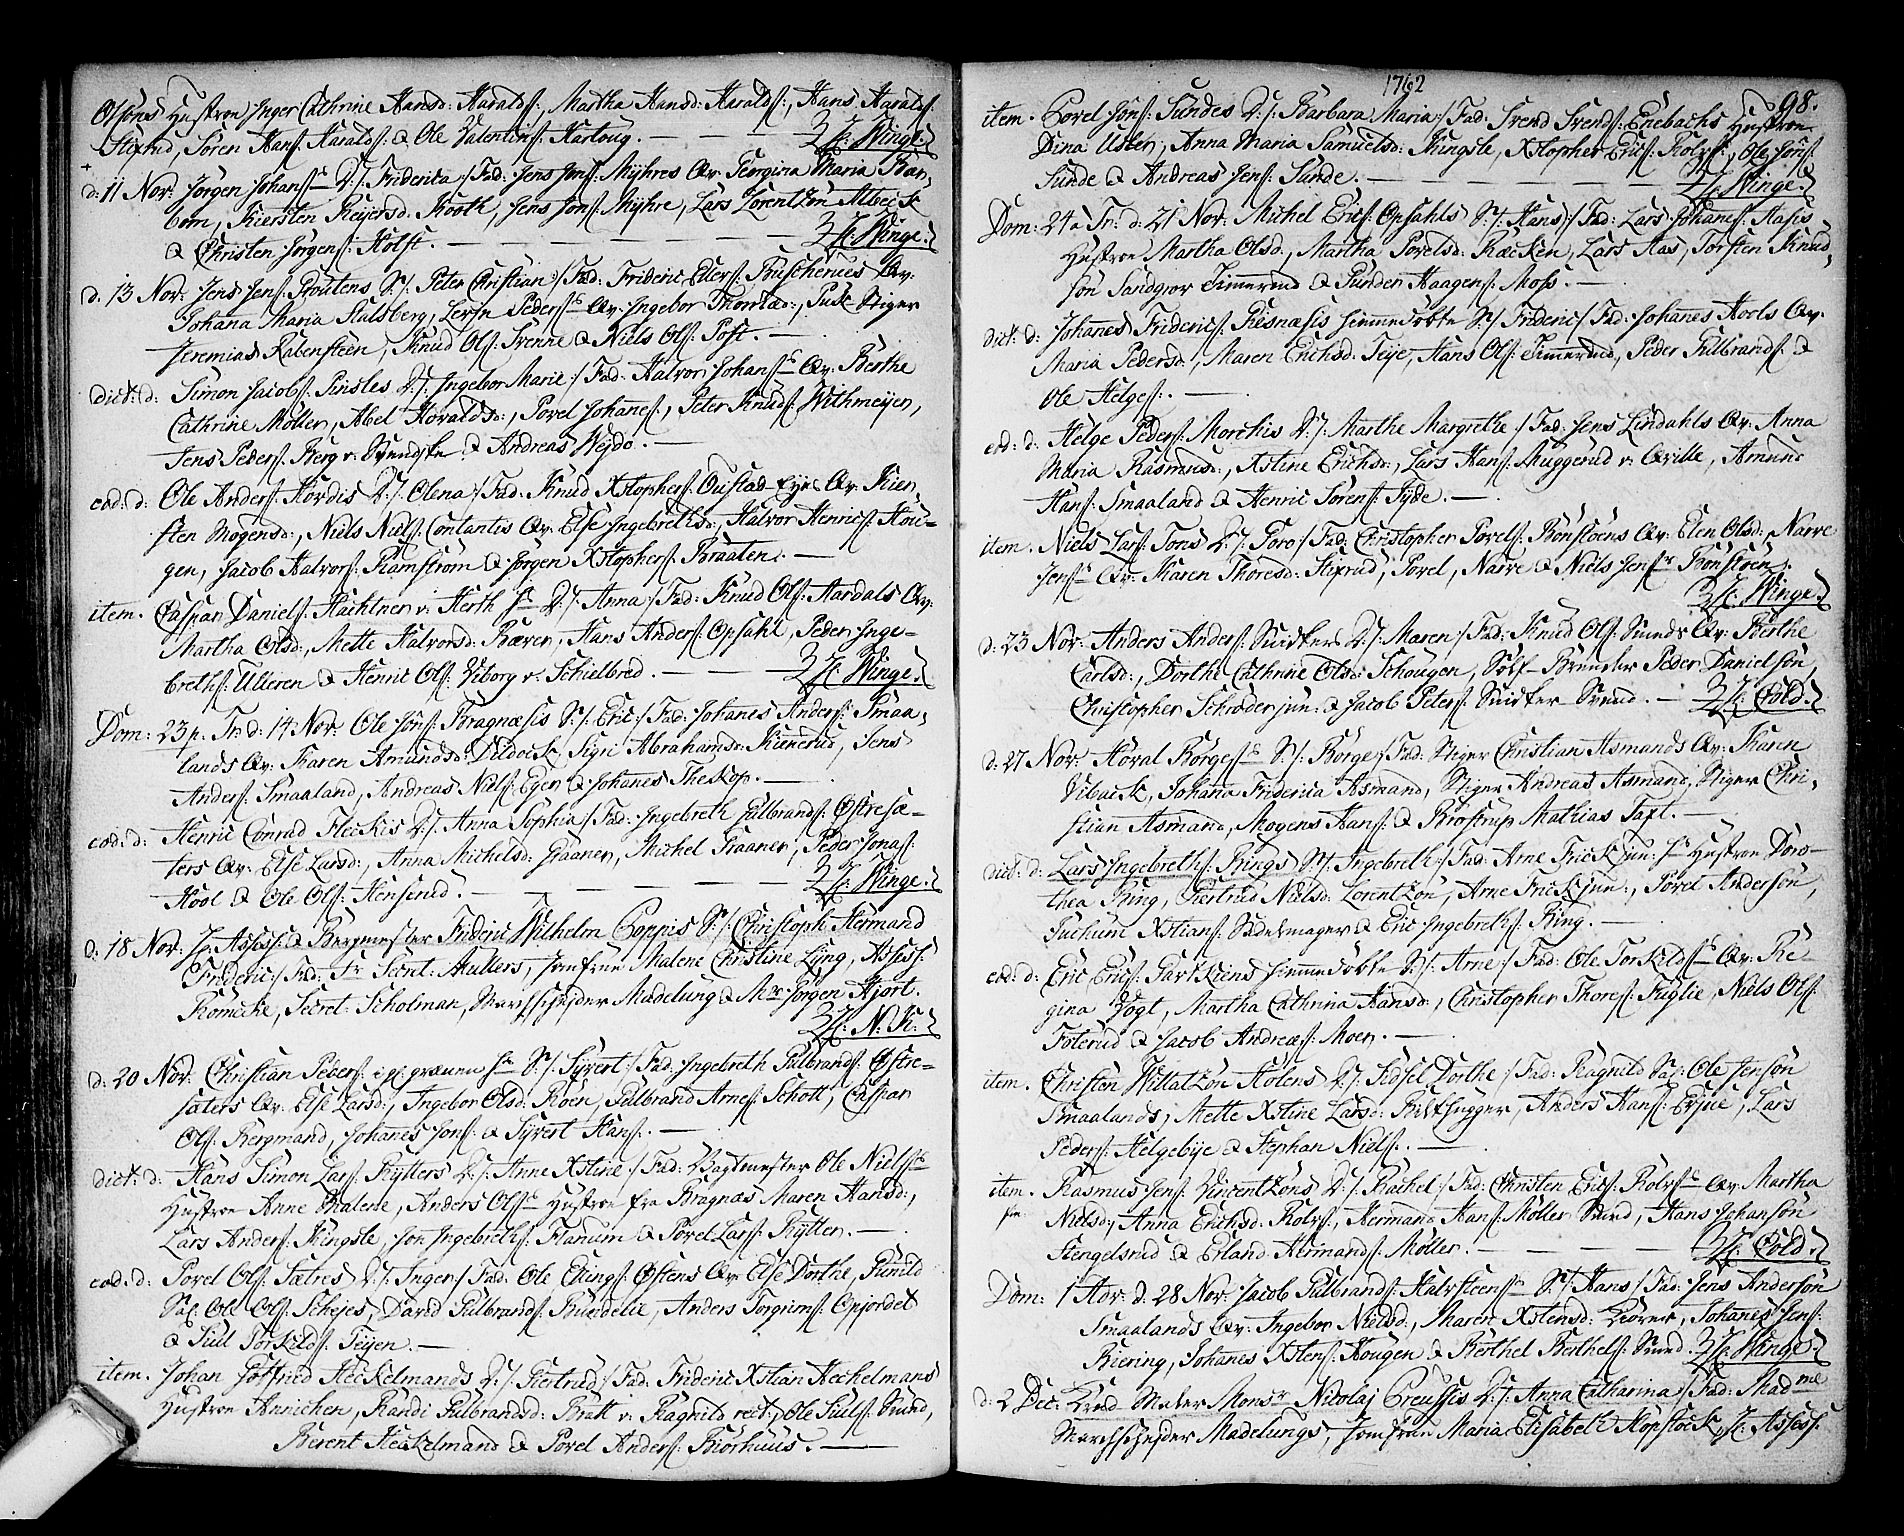 Ossöns Hustroe Inger Cathrine Hansd: Haralds:, Martha Hansd: Haralds:, Hans Haralds:
Stixrud, Sören Hans: Haralds: & Ole Valentins: Hartoug. — H: Winge.
d: 11 Nov: Jörgen Johans: D:/: Friderica :/ Fad: Jens Jons: Myhres Qv: Georgina Maria
born, Kiersten Reyersd: Rooth, Jens Jons: Myhre, Lars Lorentzön Albeck
& Christen Jörgens: Holst. — H: Winge.
d. 13 Nov: Jens Jens: Routens S:/: Peter Christian :/ Fad: Frideric Eilers: Buschenies Qv:
Johana Maria Stalsberg, Peders: Qv: Ingebor Thomæd:, Puke Stiger
Jeremias Rabensteen, Knud Ols: Svenne & Niels Ols: Post. —
dict: d: Simon Jacobs: Pinsles D:/: Ingebor Marie :/ Fad: Halvor Johans: Qv: Berthe
Cathrine Möller, Abel Horaldsd:, Povel Johanes:, Peter Knuds: Withmeijen,
Jens Peders: Berg v: & Andreas Weydo. —
eod: d: Ole Anders: Hördis D:/: Olena :/ Fad: Knud Xstophers: Oustad-Eyes Qv: Kier-
sten Mogensd:, Niels Niels: Contantis Qv: Else Ingebrethsd:, Halvor Henrics: Hou-
gen, Jacob Halvors: Ramström & Jörgen Xstophers: Braaten. —
item. Caspar Daniels: Hachtner v: Herth D:/: Anna :/ Fad: Knud Ols: Aardals Qv:
Martha Olsd:, Mette Halvorsd: Bæver, Hans Anders: Opsahl, Peder Inge-
breths: Ulleren & Henric Ols: Viborg v: Schielbred. — H: Winge.
Dom: 23 p. Tr: d: 14 Nov: Ole Jons: Bragnæsis S:/: Eric :/ Fad: Johanes Anders: Smaa-
lands Qv: Karen Amundsd: Deldock, Sigri Abrahamsd: Kiinerud, Jens
Anders: Smaaland, Andreas Niels: Eger & Johanes Theskop. —
eod: d: Henric Conrad Fleckis D:/: Anna Sophia :/ Fad: Ingebreth Gulbrands: Östresæ-
ters Qv: Else Larsd:, Anna Michelsd: Graaner, Michel Graaner, Peder Jonas:
Hool & Ole Ols: Hensrud. — H: Winge.
d: 18 Nov: H: Assess: & Bergmester Frideric Wilhelm Poppis S:/: Christoph Hermand
Frideric :/ Fad: Fr: Secret: Mullers, Jomfrue Malene Christine Lyng, Assess:
Römcke, Secret: Scholman, Marchscheider Madelung & Mr: Jörgen Hjort.
H: N: K:
d: 20 Nov: Christian Peders: S:/: Syvert :/ Fad: Ingebreth Gulbrands: Östre-
sæters Qv: Else Larsd:, Ingebor Olsd: Roen, Gulbrand Arnes: Schott, Caspar
Ols: Bergmand, Johanes Jons: & Syvert Hans: —
dict: d: Hans Simon Lars: Rytters D:/: Anne Xstine :/ Fad: Vagtmester Ole Niels:
Hustroe Anne Malene, Anders Ols: Hustroe fra Bragnæs Maren Hansd:,
Lars Anders: Kingsle, Jon Ingebreths: Flanum & Povel Lars: Rytter. —
eod: d: Povel Ols: Sætres D:/: Inger :/ Fad: Ole Ellings: Östens Qv: Else Dorthe, Gunild
Sal: Ole Ols: Schejes, David Gulbrands: Buedelie, Anders Torgrims: Opjordet
& Siul Torkilds: Teijen. —
item. Johan Gotfried Heckelmands D:/: Giertrud :/ Fad: Frideric Xstian Heckelmans
Hustroe Annichen, Randi Gulbrandsd: Bratt v: Ragnild rect:, Ole Siuls: Svend,
Berent Heckelmand & Povel Anders: Biörhuus. —
1762
98.
item. Povel Jons: Sundes D:/: Barbara Maria :/ Fad: Svend Svends: Enebachs Hustroe
Dina Usler, Anna Maria Samuelsd: Kingsle, Xstopher Erics: Rolvs:, Ole Jons:
Sunde & Andreas Jens: Sunde. — H: Winge.
Dom: 24 a Tr: d. 21 Nov: Michel Erics: Opsahls S:/: Hans :/ Fad: Lars Johanes: Aasis
Hustroe Martha Olsd:, Martha Povelsd: Kæcken, Lars Aas, Torsten Knud-
sön Sandgrov Simerud & Gunder Haagens: Moss. —
dict: d: Johanes Friderics: Giesnæsis hiemmedöbte S:/: Frideric :/ Fad: Johanes Hools Qv:
Maria Pedersd:, Maren Erichsd: Teije, Hans Ols: Simerud, Peder Gulbrands: &
Ole Helges: —
eod: d: Helge Peders: Morchis D:/: Marthe Margrethe :/ Fad: Jens Lindahls Qv: Anna
Maria Rasmusd:, Xstine Erichsd:, Lars Hans: Muggerud v: Qville, Amund
Hans: Smaaland & Henric Sörens: Gyde. —
item. Niels Lars: Tons D:/: Toro :/ Fad: Christopher Povels: Bönstöens Qv: Elen Olsd:, Narve
Jens: Qv: Karen Thoresd: Stixrud, Povel, Narve & Niels Jens: Bönstöen.
H: Winge.
d: 23 Nov: Anders Anders: Snidkers D:/: Maren :/ Fad: Knud Ols: Qv: Berthe
Carlsd:, Dorthe Cathrine Olsd: Schougen, Sölf-Brender Peder Danielsön,
Christopher Schröder jun: & Jacob Peters: Snidker Svend. — H: Cold.
d: 27 Nov: Horal Börges: S:/: Börge :/ Fad: Stiger Christian Asmands Qv: Karen
Vibach, Johana Friderica Asmand, Stiger Andreas Asmand, Stiger Chri-
stian Asmand, Mogens Hans: & Broströp Mathias Taft. —
dict: d: Lars Ingebreths: Rings S:/: Ingebreth :/ Fad: Arne Frick jun: Hustroe Doro-
thea Ring, Giertrud Nielsd: Lorentzön, Arne Frick jun:, Povel Andersön,
Juchum Xstians: Sadelmager & Eric Ingebreths: Ring. —
eod: d: Eric Erics: hiemmedöbte S:/: Arne :/ Fad: Ole Torkilds: Qv: Re-
gina Vogt, Martha Cathrina Hansd:, Christopher Thores: Fuglie, Niels Ols:
Foterud & Jacob Andreæs: Moen. —
item. Christen Willatzön Holens D:/: Sidsel Dorthe :/ Fad: Ragnild Sal: Ole Jensön
Smaalands, Mette Xstine Larsd: Bilthugger, Anders Hans: Lars
Peders: Helgebye & Stephan Niels: —
item. Rasmus Jens: Vincentzöns D:/: Rachel :/ Fad: Christen Erics: Rolvs: Qv: Martha
Nielsd:, Anna Erichsd: Rolvs:, Hermand Hans: Möller Svend, Hans Johansön
Stengelsrud & Erland Hermands: Möller. — H: Cold.
Dom: 1 Adv: d. 28 Nov: Jacob Gulbrands: Halvsteens: S:/: Hans :/ Fad: Jens Andersön
Smaalands Qv: Ingebor Nielsd:, Maren Xstensd: Kiörner, Johanes Jens:
Biering, Johanes Xstens: Hougen & Berthel Berthels: Svend. H: Winge.
d: 2 Dec: Mahler Monsr Nicolaj Creussis D:/: Anna Catharina :/ Fad: Madme
Marchscheider Madelungs, Jomfrue Maria Elisabeth Klopstock, H: Assess: